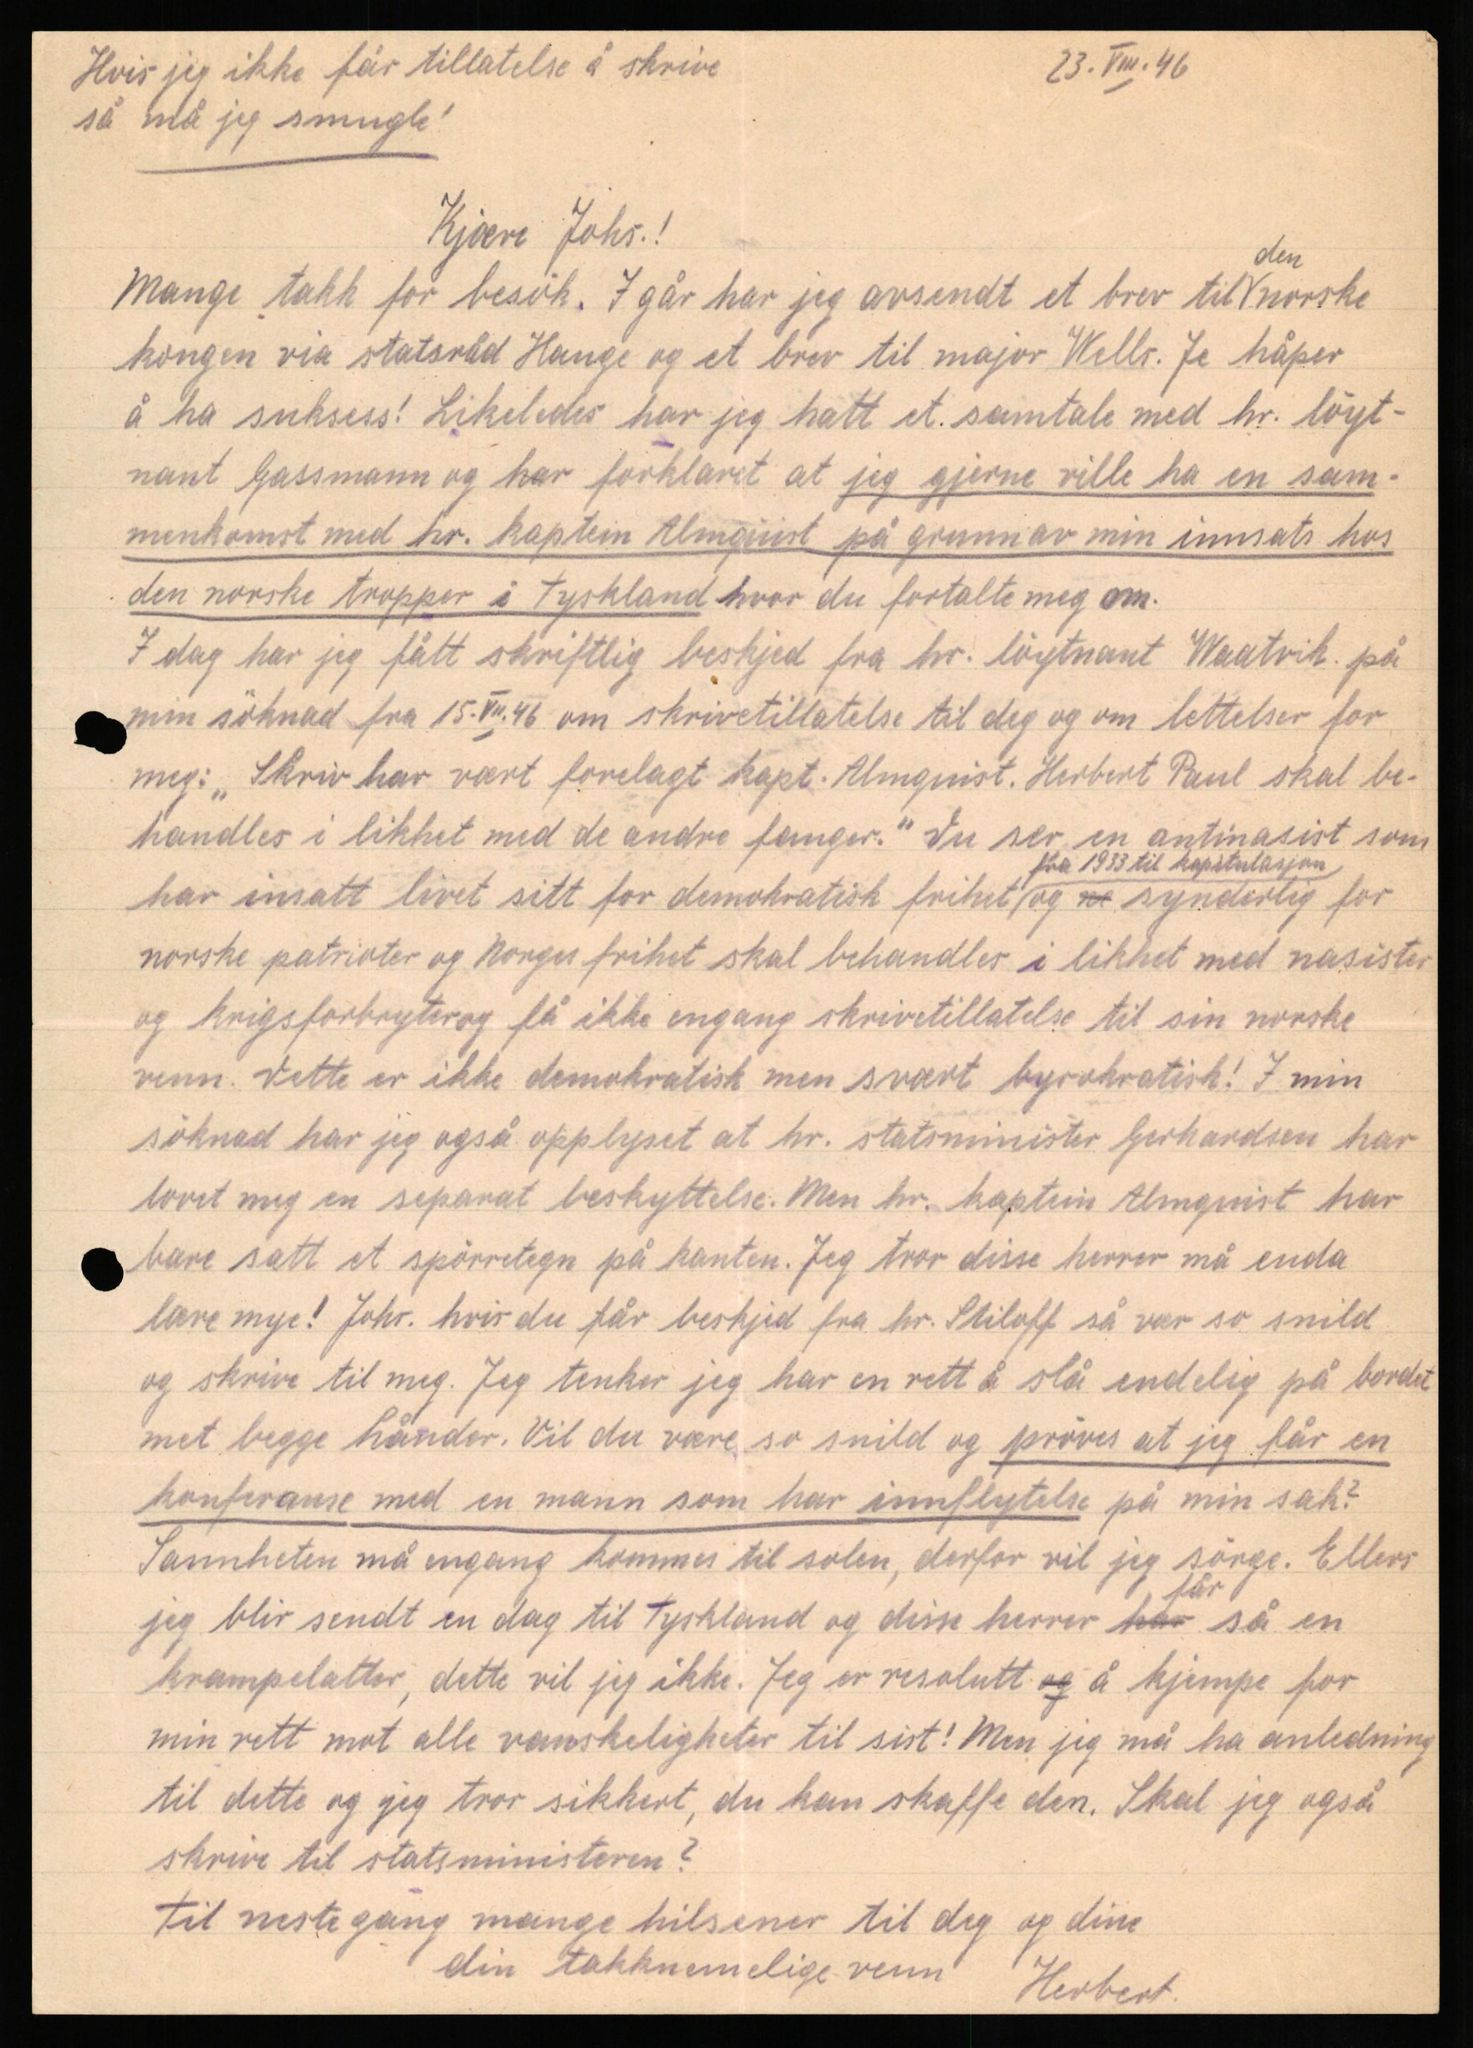 Hvis jeg ikke får tillatelse å skrive
så må jeg smugle!
23. VIII. 46
Kjære Johs.!
Mange takk for besök. I går har jeg avsendt et brev til den norske
kongen via statsråd Hauge og et brev til major Wells. Je håper
å ha suksess! Likeledes har jeg hatt et. samtale med hr. löyt-
nant Gassmann og har forklaret at jeg gjerne ville ha en sam-
menkomst med hr. kaptein Almquist på grunn av min innsats hos
den norske tropper i Tyskland hvor du fortalte meg om.
I dag har jeg fått skriftlig beskjed fra hr. löytnant Waatvik. på
min söknad fra 15. VIII. 46 om skrivetillatelse til deg og om lettelser for
meg: „Skriv har vært forelagt kapt. Almquist. Herbert Paul skal be-
handles i likhet med de andre fanger.“ Du ser en antinasist som
har insatt livet sitt for demokratisk frihet fra 1933 til kapitulasjon og synderlig for
norske patrioter og Norges frihet skal behandles i likhet med nasister
og krigsforbryter og få ikke engang skrivetillatelse til sin norske
venn. Dette er ikke demokratisk men svært byrokratisk! I min
söknad har jeg også opplyset at hr. statsminister Gerhardsen har
lovet meg en separat beskyttelse. Men hr. kaptein Almquist har
bare satt et spörretegn på kanten. Jeg tror disse herrer må enda
lære mye! Johs. hvis du får beskjed fra hr. Stiloff så vær so snild
og skrive til meg. Jeg tenker jeg har en rett å slå endelig på bordet
met begge hånder. Vil du være so snild og pröves at jeg får en
konferanse med en mann som har innflytelse på min sak?
Sannheten må engang kommes til solen, derfor vil jeg sörge. Ellers
jeg blir sendt en dag til Tyskland og disse herrer har får så en
krampelatter, dette vil jeg ikke. Jeg er resolutt og å kjempe for
min rett mot alle vanskeligheter til sist! Men jeg må ha anledning
til dette og jeg tror sikkert, du kan skaffe den. Skal jeg også
skrive til statsministeren?
Til neste gang mange hilsener til deg og dine
din takknemelige venn Herbert.